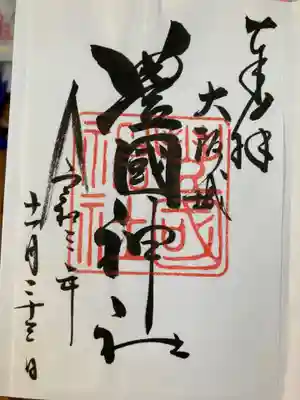 奉拝
大阪城
豊國神社
令和三年
十一月二十三日